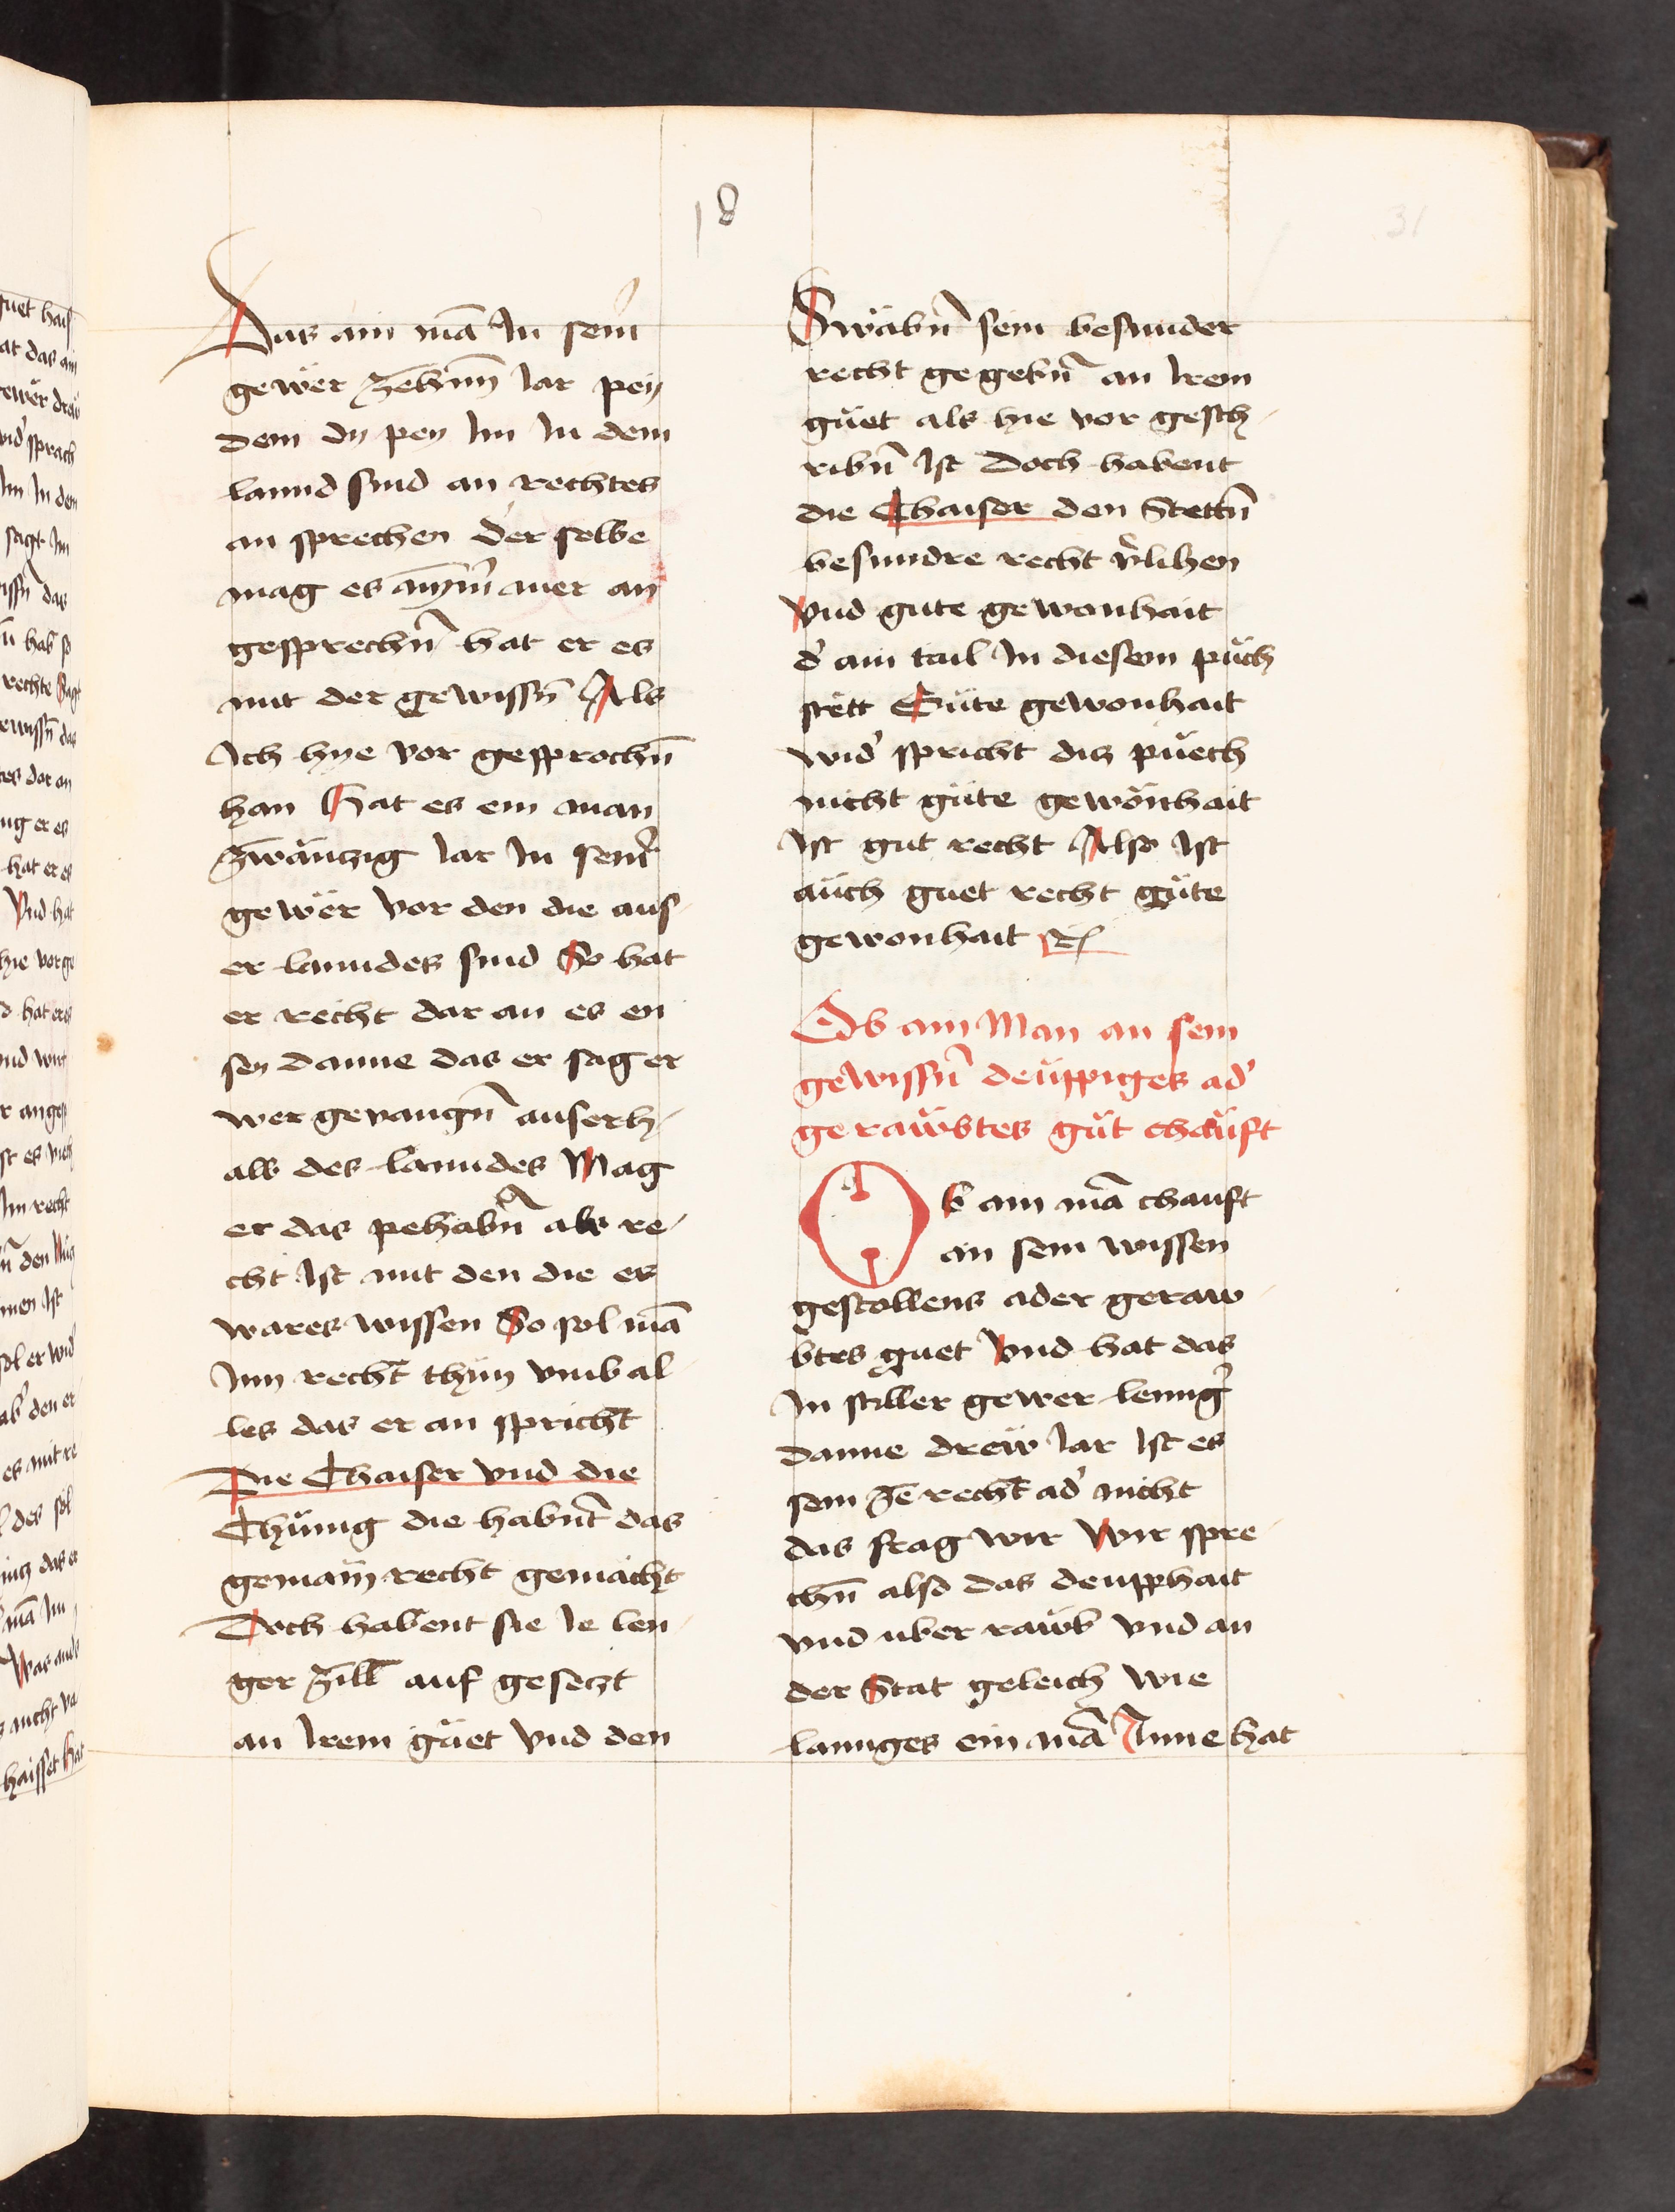 18
31
Das ain mā In seinr̄
gewër zehenn Jar pey
dem dy pey Im In dem
lannd sind an rechtes
an sprechen der selbe
mag es nÿm̄ mer an
gesprechn̄ hat er es
mit der gewissn̄ Als
Ich hye vor gesprochn̄
han Hat es ein man
zwäntzig Jar In seinr̄
gewër vor den die aus
er lanndes sind So hat
er recht dar an es en
sey danne das er sag er
wer gevangn̄ auserh-
alb des lanndes Mag
er das pehabn̄ als re-
cht Ist mit den die es
wares wissen So sol mā
Im recht thun vmb al
les das er an spricht
Die Chaiser vnd die
Chünig die habnt das
gemain recht gemacht
Doch habent sie Je len
ger zill auf gesetzt
an Irem güet Vnd den
Swäbn̄ sein besunder
recht gegebn̄ an Irem
güet als hie vor gesch-
ribn̄ Ist Doch habent
die Chaiser den Stettn̄
besundre recht v̄lihen
Vnd gute gewonhait
d' ain tail In diesem püch
stett Güte gewonhait
wid' spricht dis puech
nicht güte gewonhait
Ist gut recht Also Ist
auch guet recht güte
gewonhait etc
Ob ain Man an sein
gewissn̄ deüppiges ad'
gerawbtes güt chauft
Ob ain mā chauft
an sein wissen
gestollens ader geraw-
btes guet Vnd hat das
In stiller gewer lenng'
danne drew Jar Ist es
sein zē recht ad' nicht
das frag wir Wir spre-
chn̄ also das deupphait
vnd uber rawb vnd an
der Stat geleich wie
lannges ein mā Inne hat